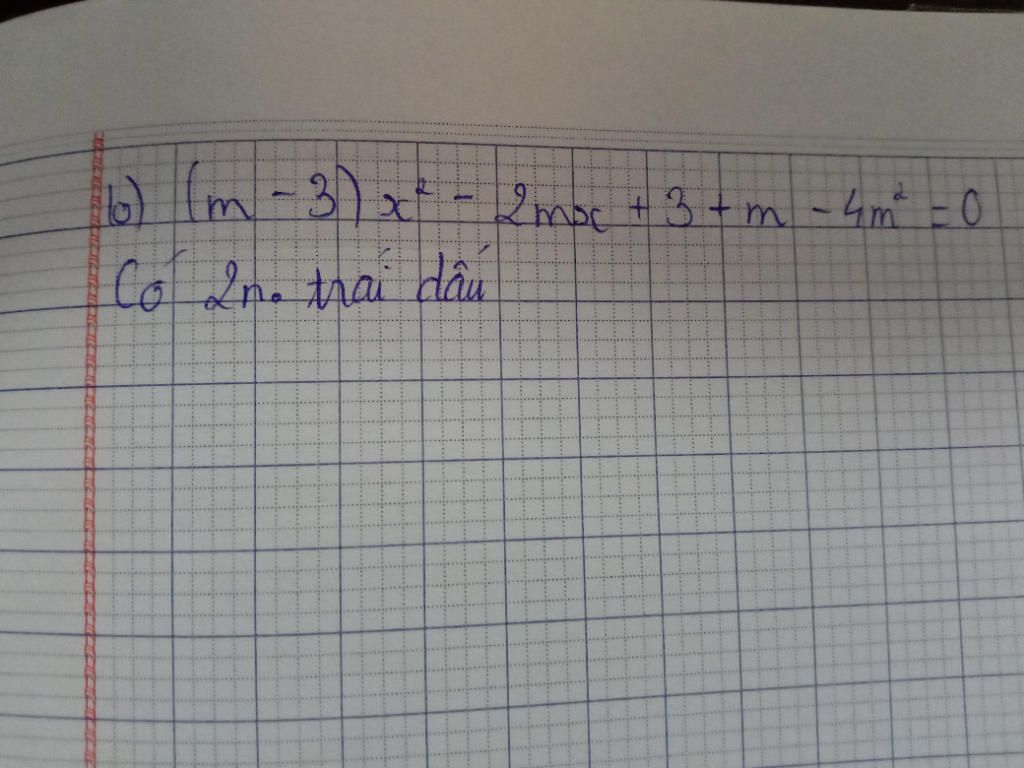 b) (m - 3) x² - 2mx + 3 + m - 4m² = 0
Có 2n. trái dấu